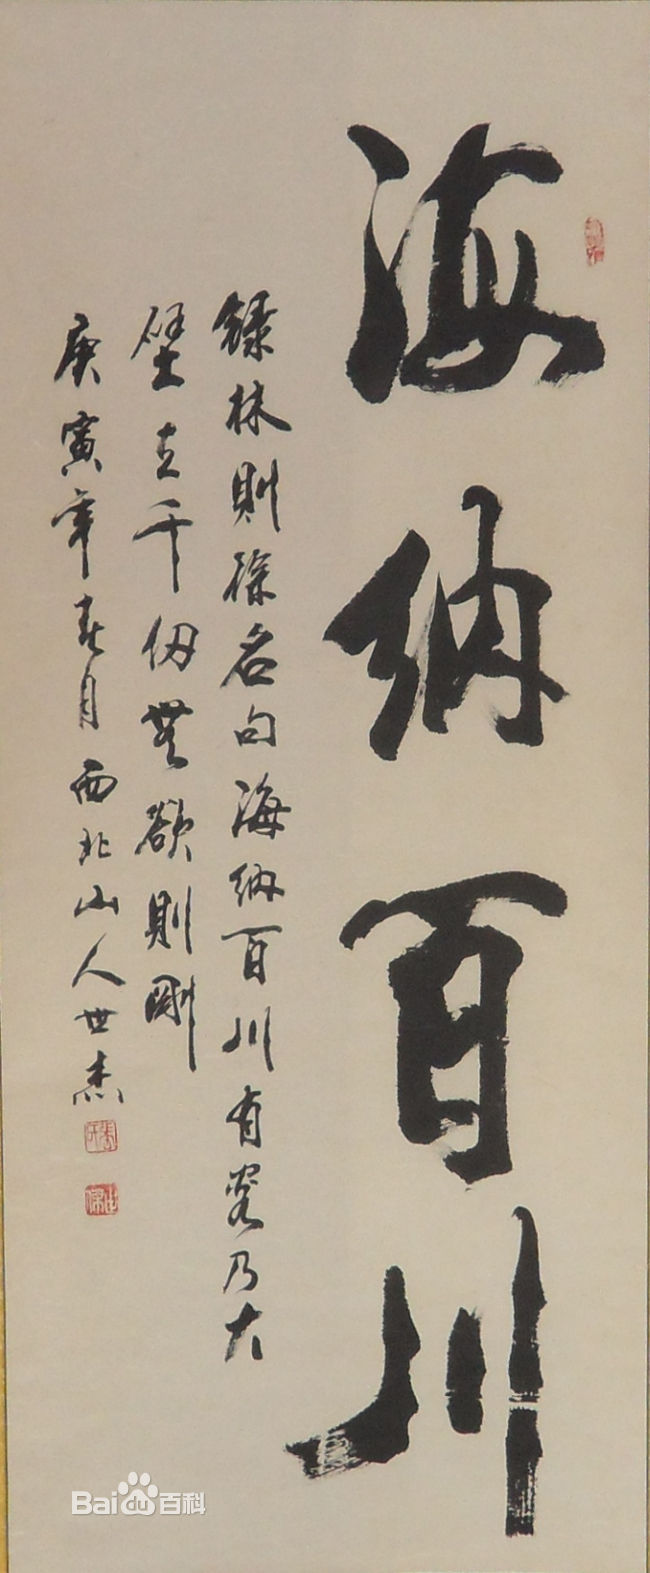 海納百川
錄林則徐名句海納百川有容乃大
壁立千仞無欲則剛
庚寅年春月西北山人世杰
Baidu百科